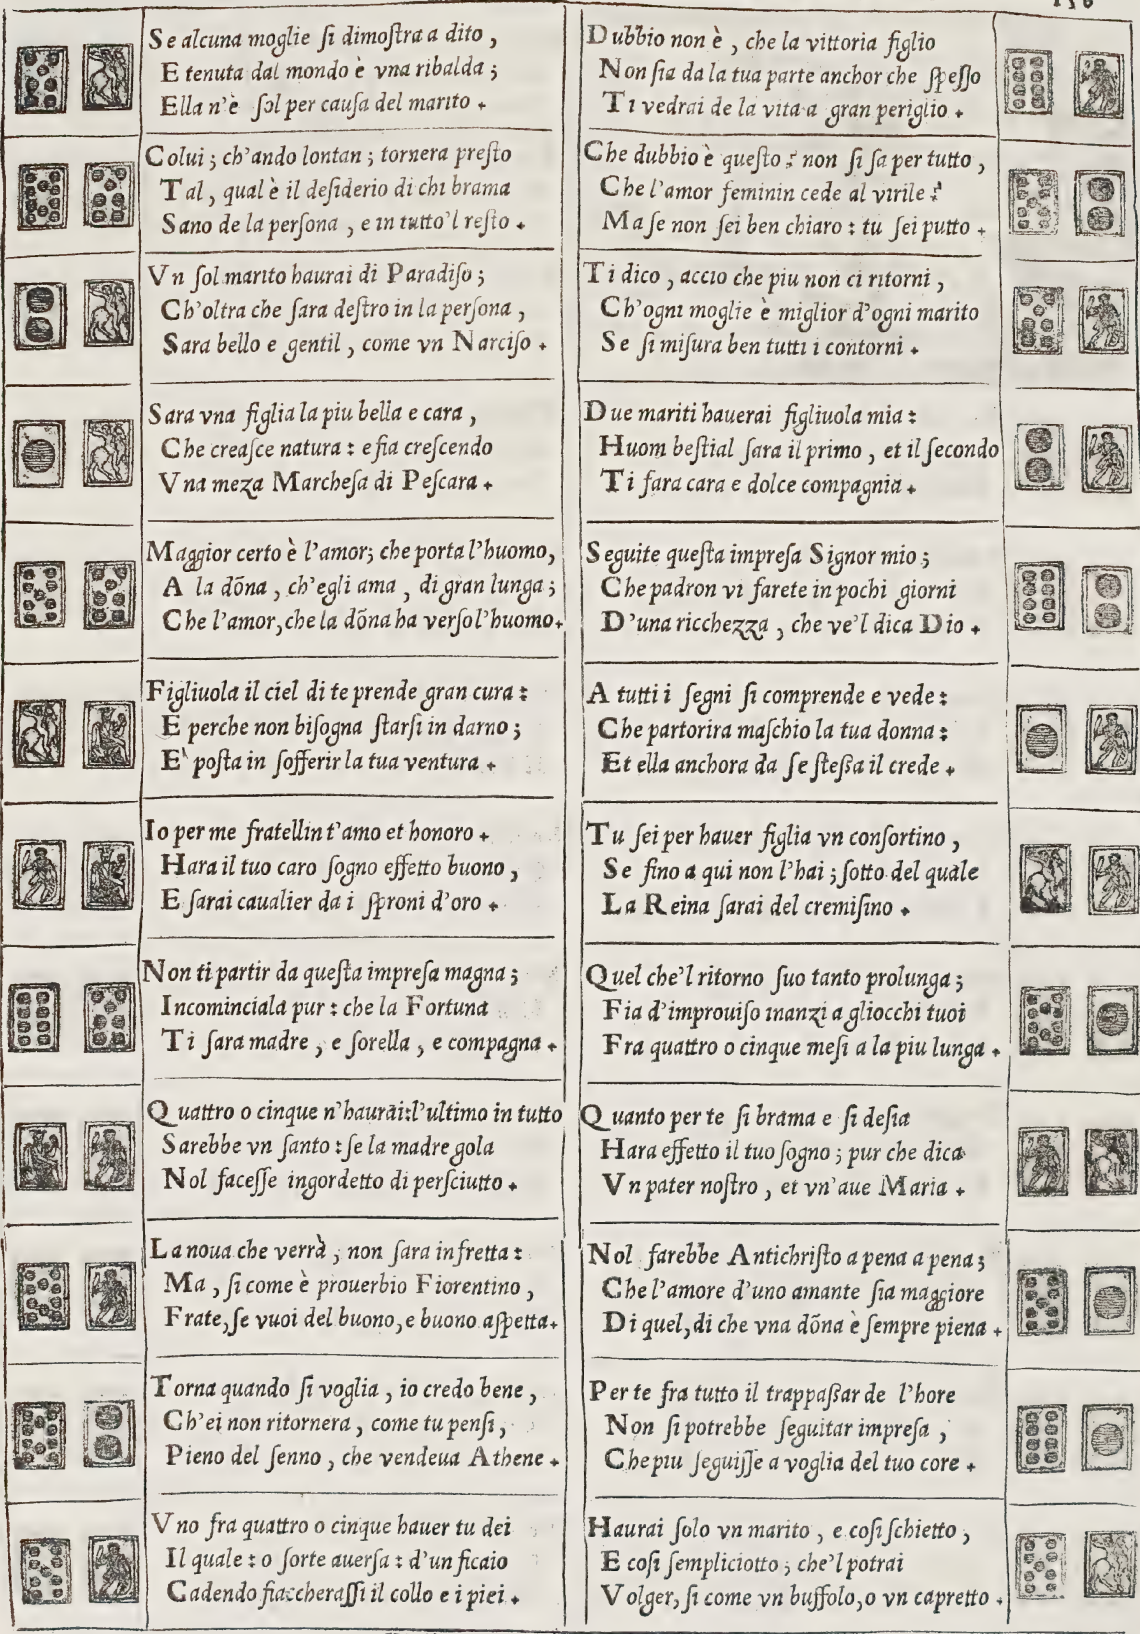 Se alcuna moglie ſi dimoſtra a dito ,
E tenuta dal mondo è vna ribalda ;
Ella n'è ſol per cauſa del marito .
Colui ; ch'ando lontan ; tornera preſto
Tal, qual è il deſiderio di chi brama
Sano de la perſona , e in tutto'l reſto .
Vn ſol marito haurai di Paradiſo ;
Ch'oltra che ſara deſtro in la perſona ,
Sara bello e gentil , come vn Narciſo .
Sara vna figlia la piu bella e cara ,
Che creaſce natura : e fia creſcendo
Vna meza Marcheſa di Peſcara .
Maggior certo è l'amor; che porta l'huomo,
A la dōna , ch'egli ama , di gran lunga ;
Che l'amor, che la dōna ha verſo l'huomo.
Figliuola il ciel di te prende gran cura :
E perche non biſogna ſtarſi in darno ;
E' poſta in ſofferir la tua ventura .
Io per me fratellin t'amo et honoro .
Hara il tuo caro ſogno effetto buono ,
E ſarai caualier da i ſproni d'oro .
Non ti partir da queſta impreſa magna ;
Incominciala pur : che la Fortuna
Ti ſara madre , e ſorella , e compagna .
Quattro o cinque n'haurai: l'ultimo in tutto
Sarebbe vn ſanto : ſe la madre gola
Nol faceſſe ingordetto di perſciutto .
La noua che verrà , non ſara in fretta :
Ma , ſi come è prouerbio Fiorentino ,
Frate, ſe vuoi del buono, e buono aſpetta.
Torna quando ſi voglia , io credo bene ,
Ch'ei non ritornera , come tu penſi ,
Pieno del ſenno , che vendeua Athene .
Vno fra quattro o cinque hauer tu dei
Il quale : o ſorte auerſa : d'un ficaio
Cadendo fiaccheraſſi il collo e i piei .
Dubbio non è , che la vittoria figlio
Non ſia da la tua parte anchor che ſpeſſo
Ti vedrai de la vita a gran periglio .
Che dubbio è queſto ? non ſi ſa per tutto ,
Che l'amor feminin cede al virile ?
Ma ſe non ſei ben chiaro : tu ſei putto .
Ti dico , accio che piu non ci ritorni ,
Ch'ogni moglie è miglior d'ogni marito
Se ſi miſura ben tutti i contorni .
Due mariti hauerai figliuola mia :
Huom beſtial ſara il primo , et il ſecondo
Ti fara cara e dolce compagnia .
Seguite queſta impreſa Signor mio ;
Che padron vi farete in pochi giorni
D'una ricchezza , che ve'l dica Dio .
A tutti i ſegni ſi comprende e vede :
Che partorira maſchio la tua donna :
Et ella anchora da ſe ſteſsa il crede .
Tu ſei per hauer figlia vn conſortino ,
Se fino a qui non l'hai ; ſotto del quale
La Reina ſarai del cremiſino .
Quel che'l ritorno ſuo tanto prolunga ;
Fia d'improuiſo inanzi a gliocchi tuoi
Fra quattro o cinque meſi a la piu lunga .
Quanto per te ſi brama e ſi deſia
Hara effetto il tuo ſogno ; pur che dica
Vn pater noſtro , et vn'aue Maria .
Nol farebbe Antichriſto a pena a pena ;
Che l'amore d'uno amante ſia maggiore
Di quel, di che vna dōna è ſempre piena .
Per te fra tutto il trappaſsar de l'hore
Non ſi potrebbe ſeguitar impreſa ,
Che piu ſeguiſſe a voglia del tuo core .
Haurai ſolo vn marito , e coſi ſchietto ,
E coſi ſempliciotto ; che'l potrai
Volger, ſi come vn buffolo, o vn capretto .